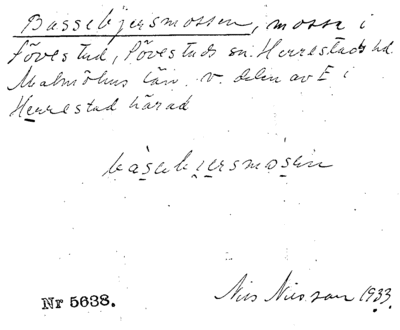 Bassebjersmossen, mosse i
Fövestad, Lövestads sn. Herrestads hd.
Malmöhus län. v. delen av E i
Herrestad härad
basebjersmosen
Nils Nilsson 1933.
Nr 5638.